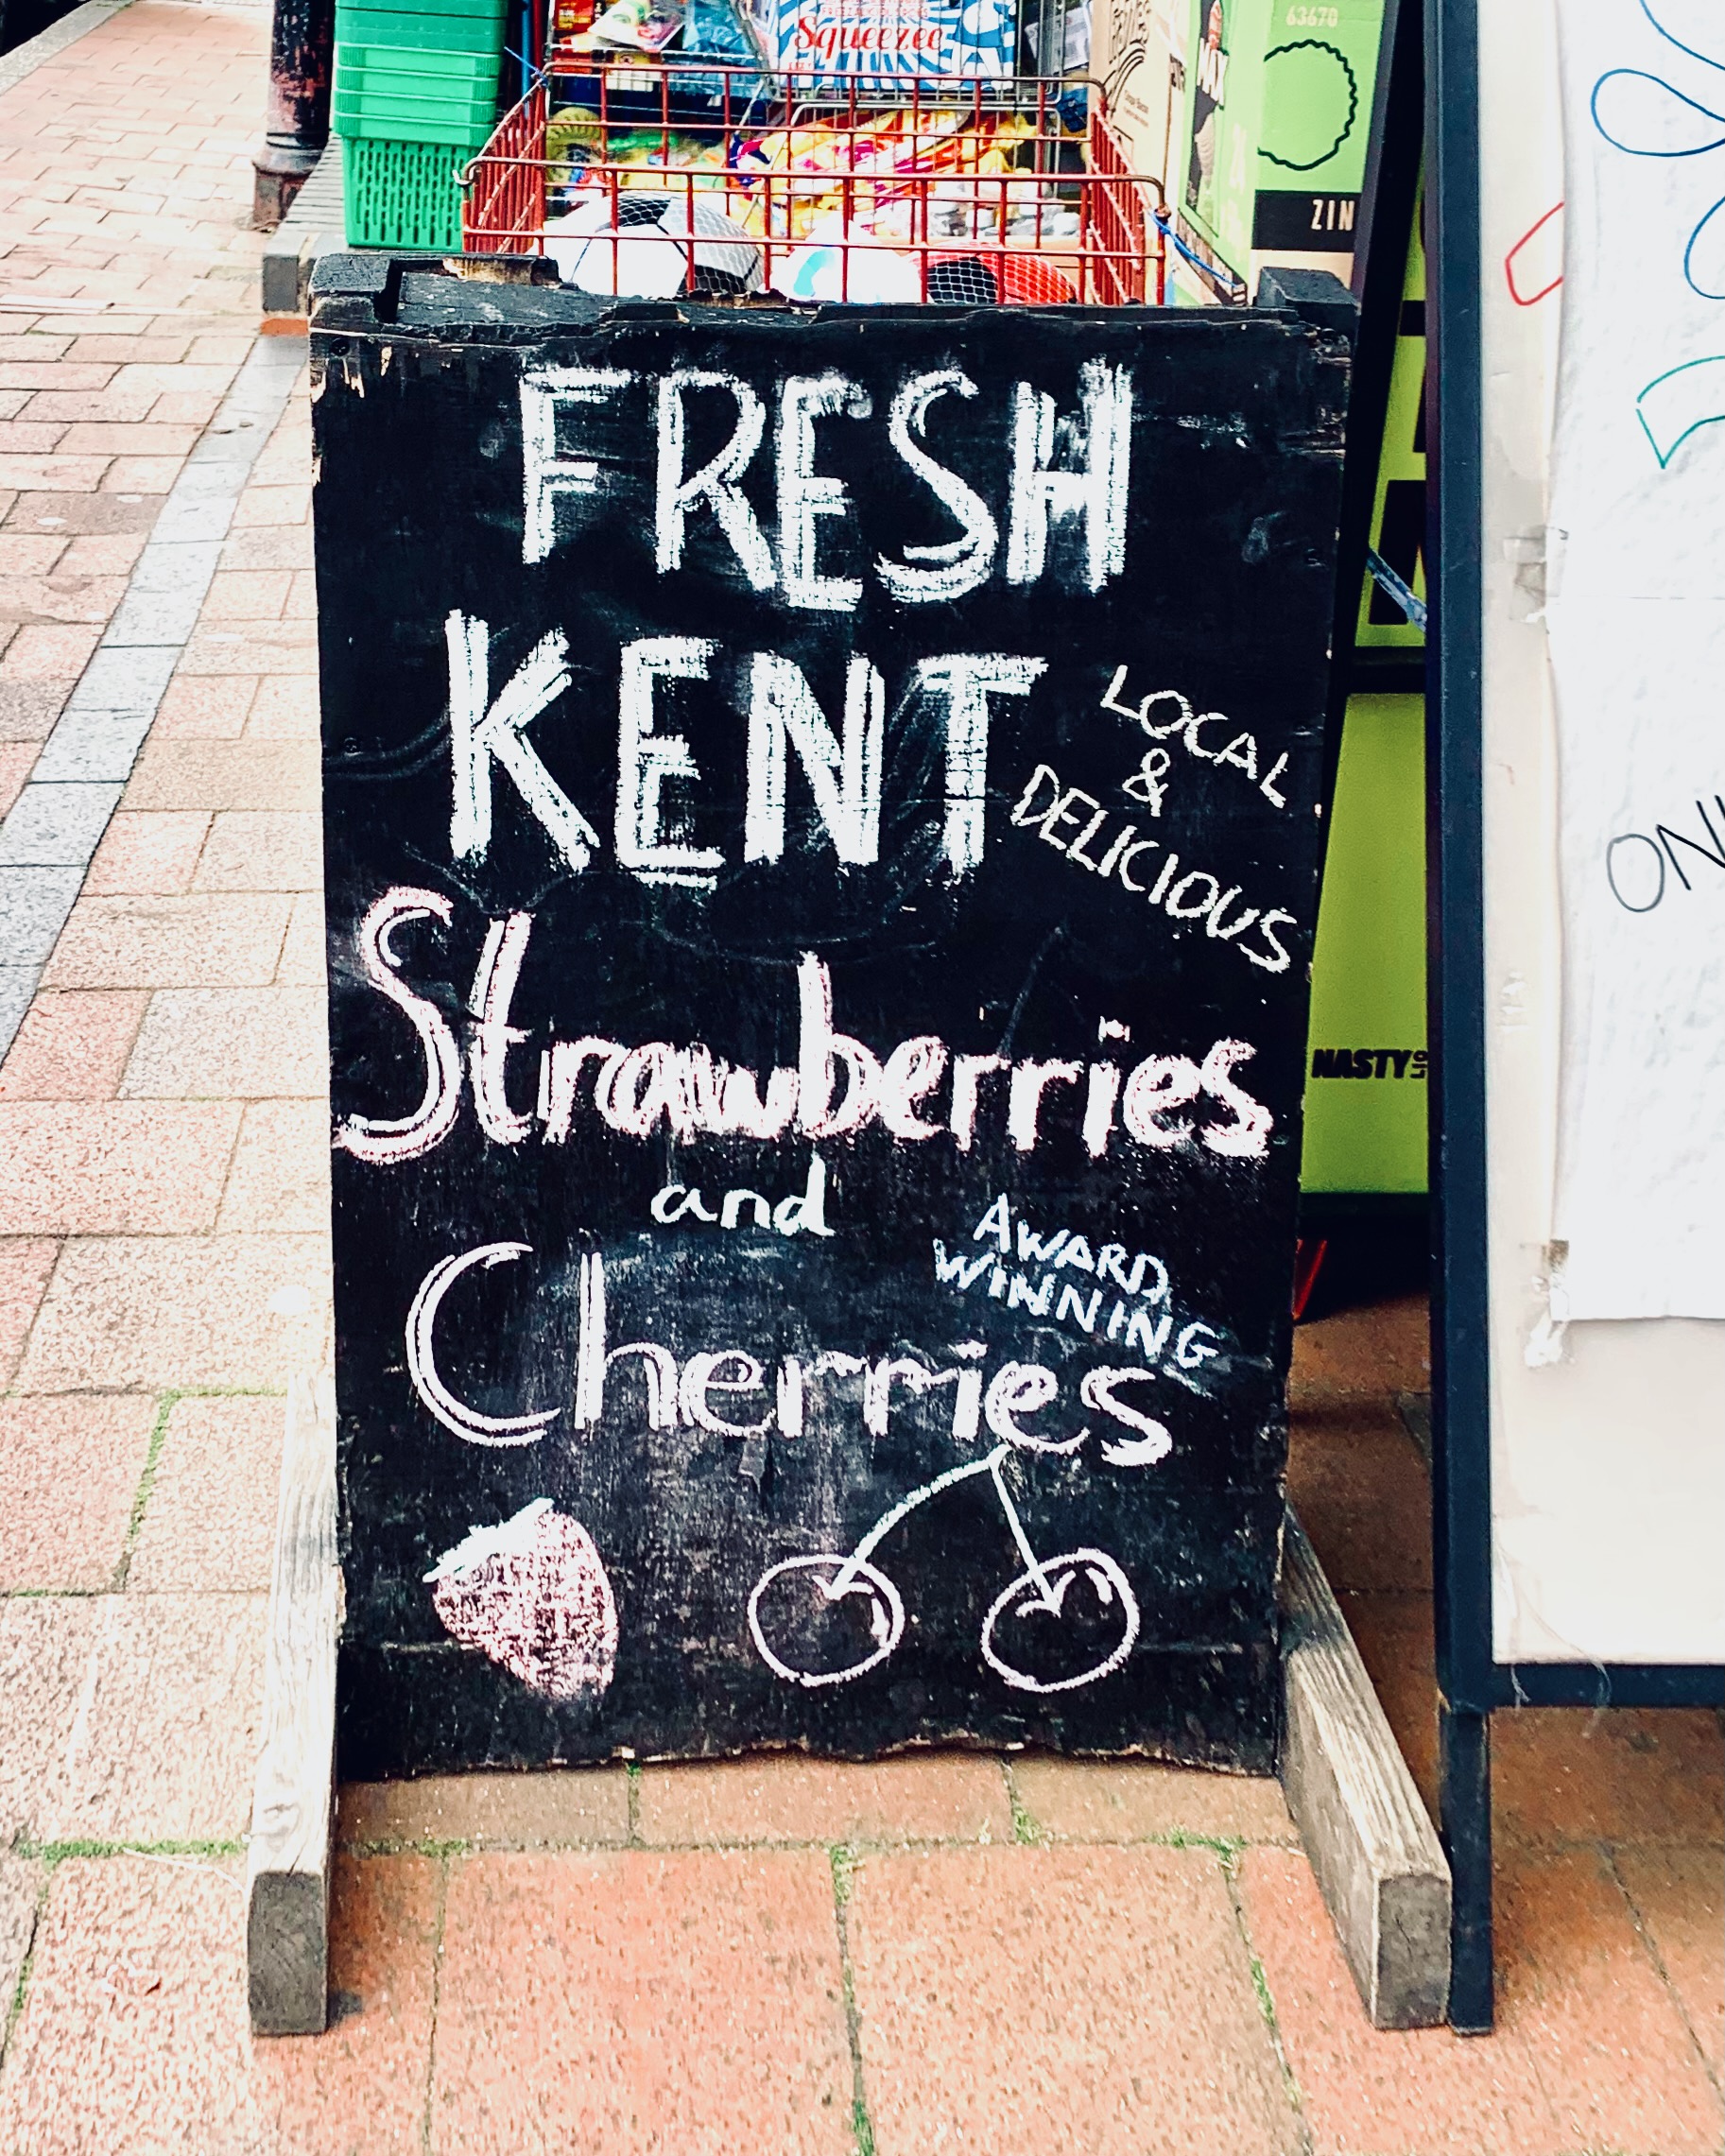 Squeezee
63670
ZIN
FRESH
KENT
LOCAL
&
DELICIOUS
Strawberries
and
AWARD
WINNING
Cherries
NASTY